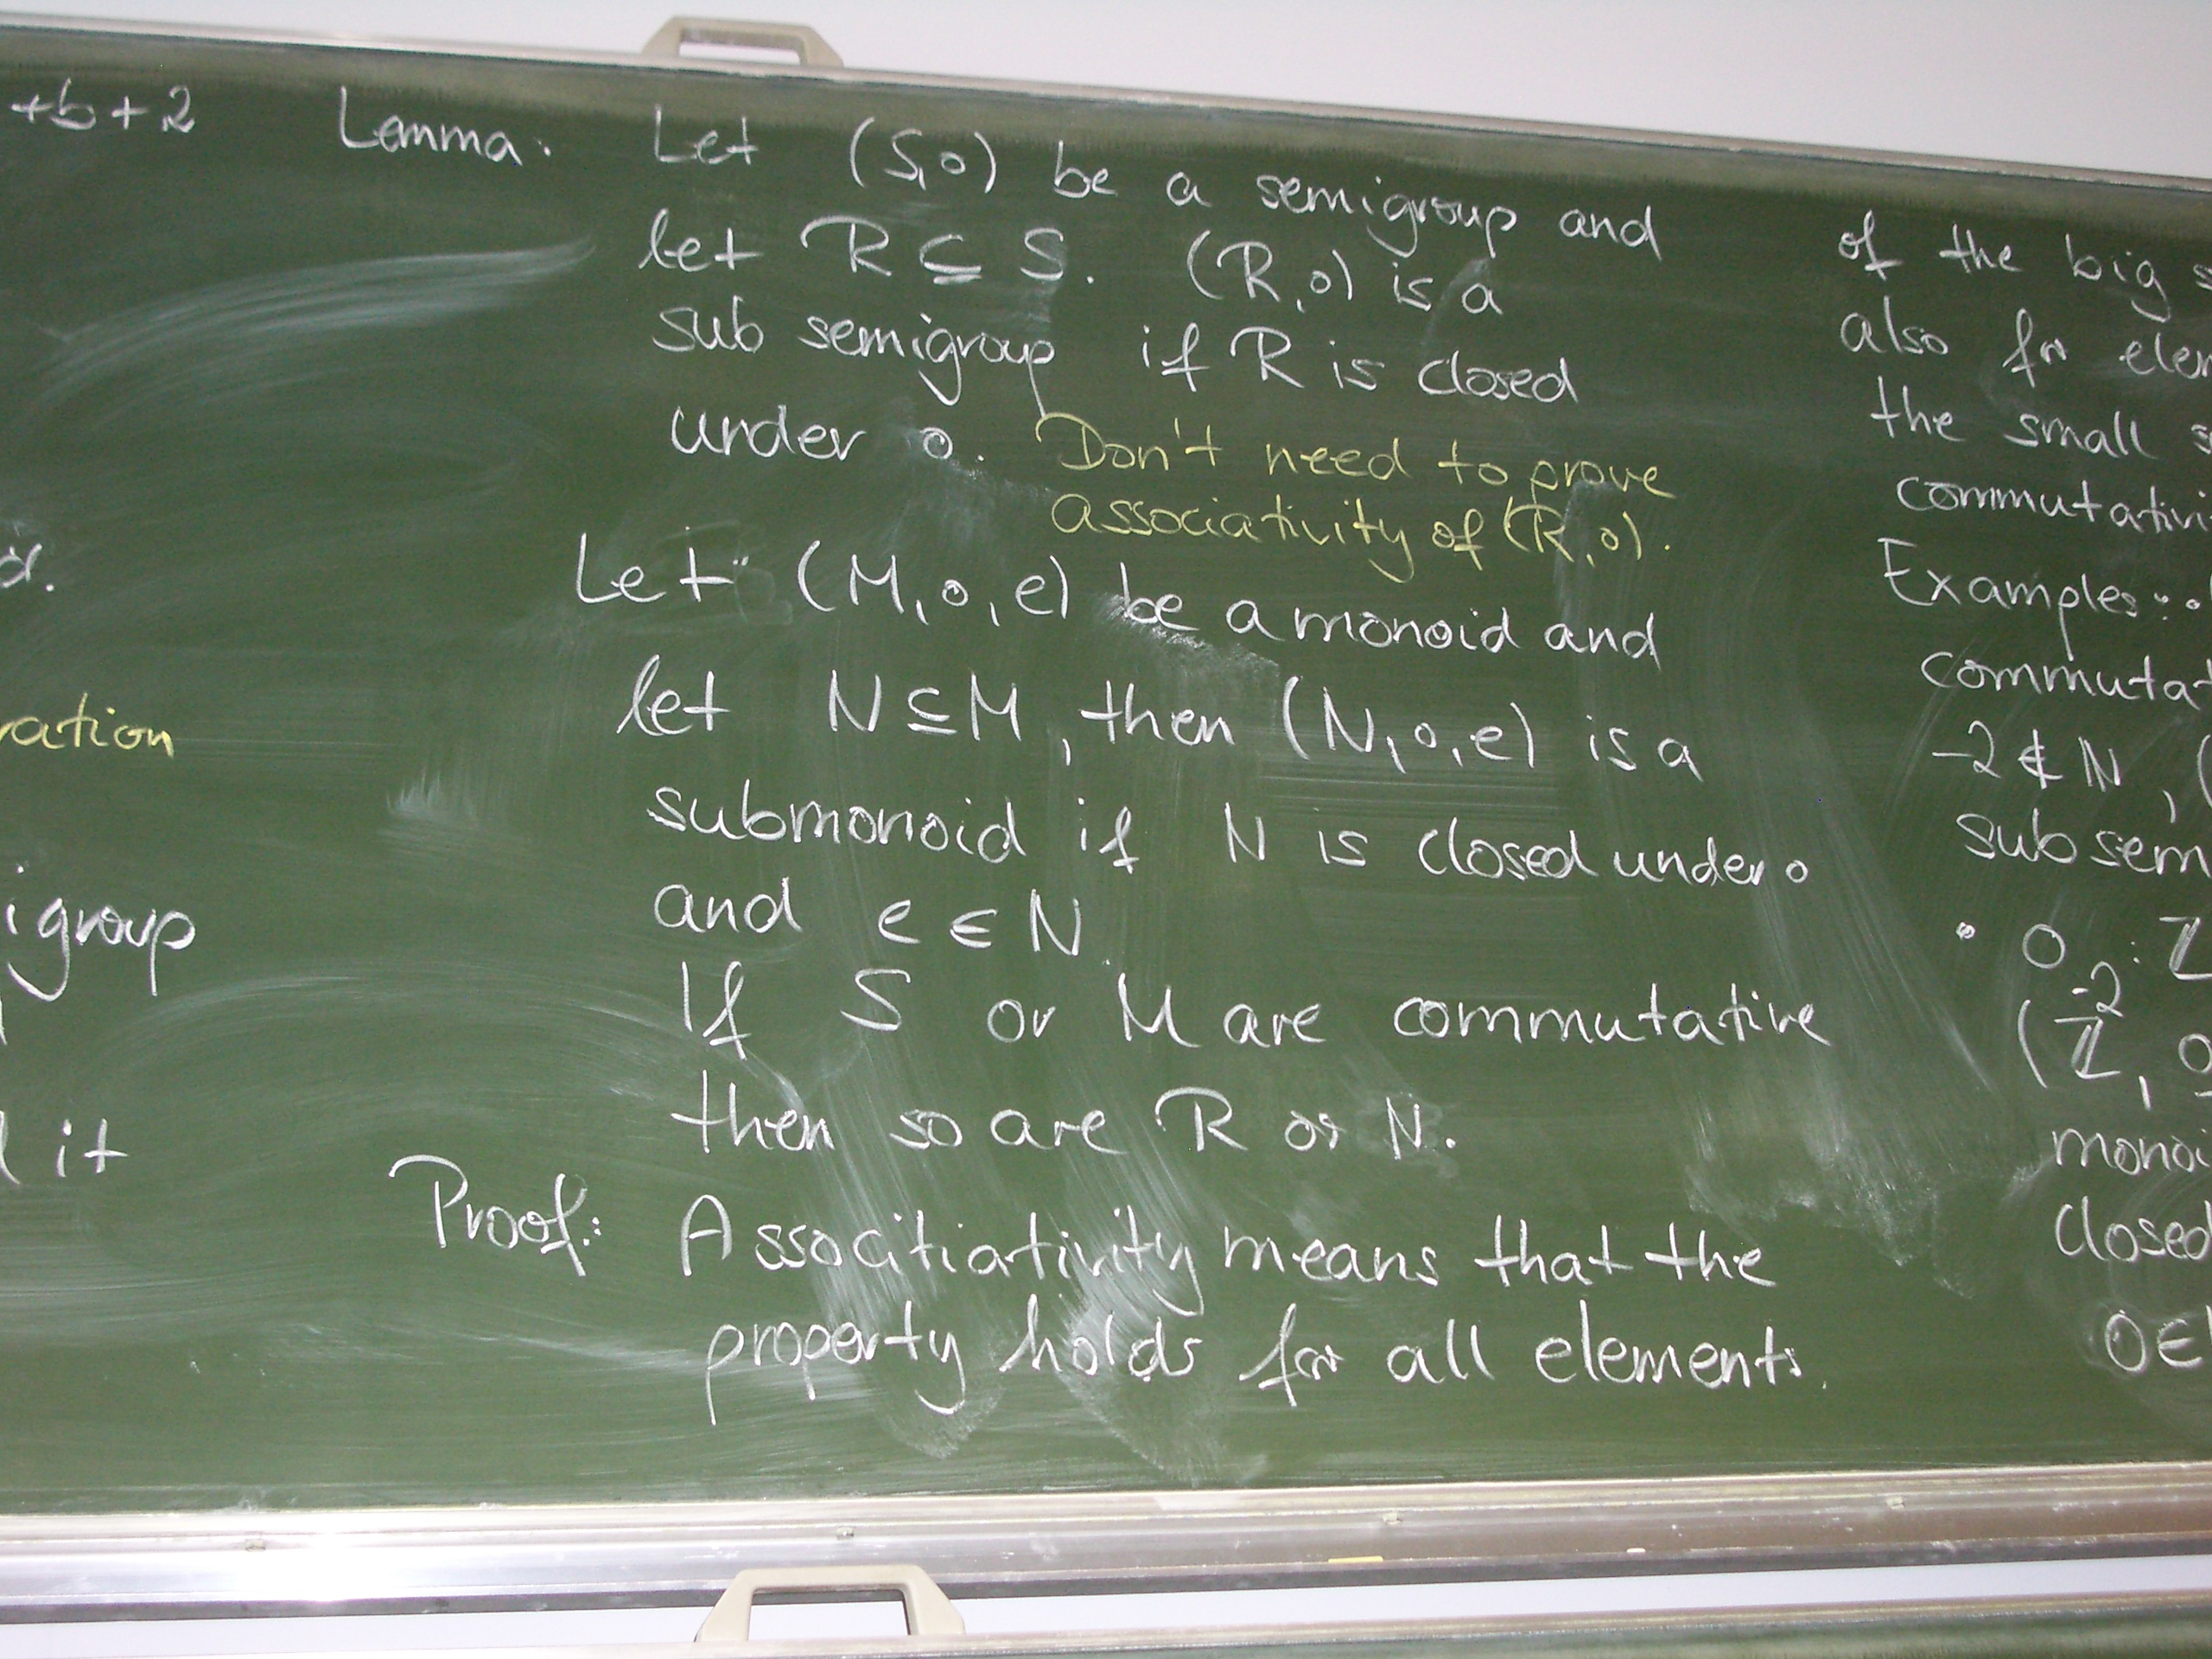 +b+2
ration
igroup
it
Lemma: Let (S,∘) be a semigroup and
let R ⊆ S. (R,∘) is a
sub semigroup if R is closed
under ∘. Don't need to prove
associativity of (R,∘).
Let (M,∘,e) be a monoid and
let N ⊆ M, then (N,∘,e) is a
submonoid if N is closed under ∘
and e ∈ N.
If S or M are commutative
then so are R or N.
Proof: Associtiativity means that the
property holds for all elements.
of the big s
also for elem
the small s
commutativi
Examples: •
commutat
-2 ∉ N, (
sub sem
• ∘₋₂ : ℤ
(ℤ, ∘
monoi
closed
0 ∈